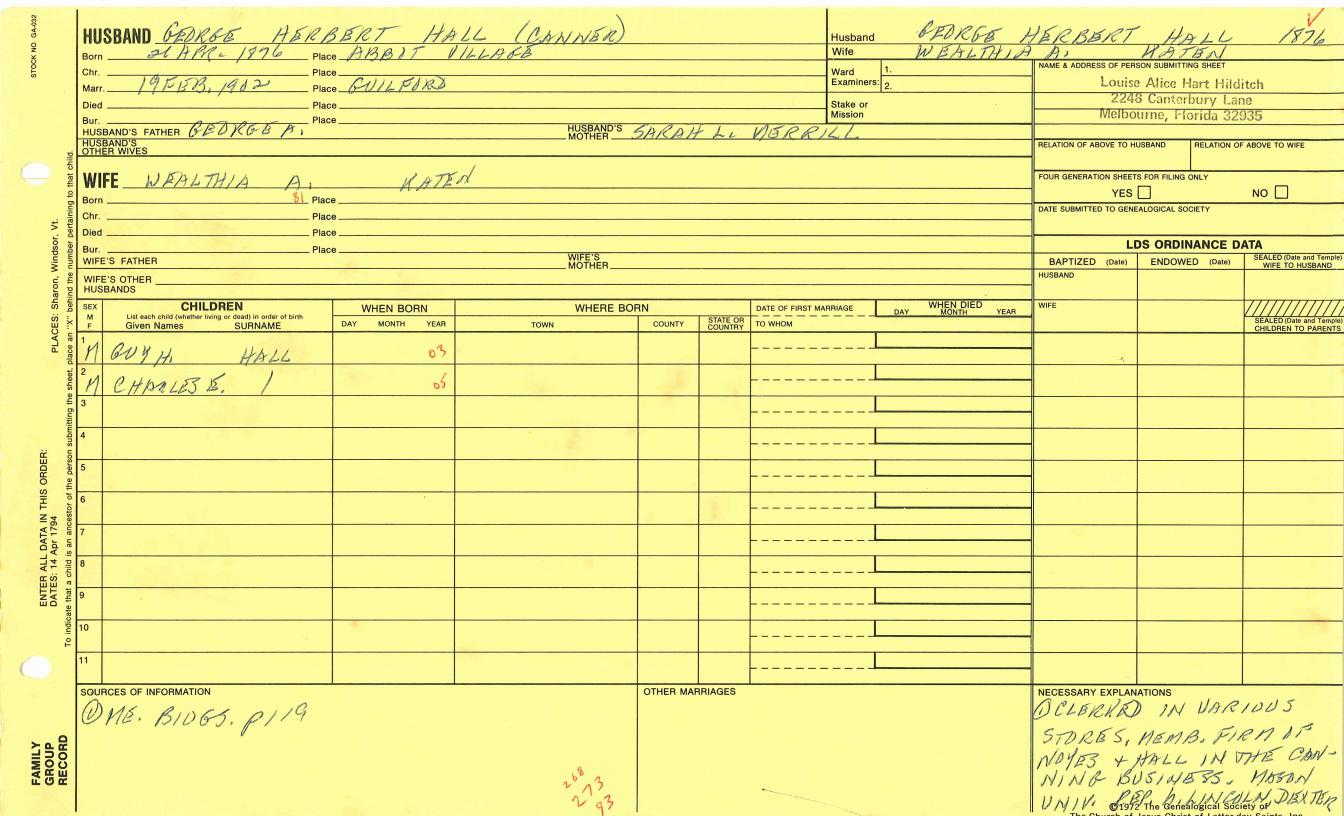 STOCK NO. GA-032
HUSBAND GEORGE HERBERT HALL (CANNER)
Born 21 APR. 1876 Place ABBIT VILLAGE
Chr. Place
Marr. 19 FEB. 1902 Place GUILFORD
Died Place
Bur. Place
HUSBAND'S FATHER GEORGE A. HUSBAND'S MOTHER SARAH L. MERRILL
HUSBAND'S OTHER WIVES
Husband GEORGE HERBERT HALL 1876
Wife WEALTHIA A. KATEN
Ward Examiners: 1.
2.
Stake or Mission
NAME & ADDRESS OF PERSON SUBMITTING SHEET
Louise Alice Hart Hilditch
2248 Canterbury Lane
Melbourne, Florida 32935
RELATION OF ABOVE TO HUSBAND RELATION OF ABOVE TO WIFE
FOUR GENERATION SHEETS FOR FILING ONLY
YES NO
DATE SUBMITTED TO GENEALOGICAL SOCIETY
WIFE WEALTHIA A. KATEN
Born 81 Place
Chr. Place
Died Place
Bur. Place
WIFE'S FATHER WIFE'S MOTHER
WIFE'S OTHER HUSBANDS
LDS ORDINANCE DATA
BAPTIZED (Date) ENDOWED (Date) SEALED (Date and Temple) WIFE TO HUSBAND
HUSBAND
WIFE
SEALED (Date and Temple) CHILDREN TO PARENTS
SEX M F
CHILDREN
List each child (whether living or dead) in order of birth
Given Names SURNAME
WHEN BORN
DAY MONTH YEAR
WHERE BORN
TOWN COUNTY STATE OR COUNTRY
DATE OF FIRST MARRIAGE
TO WHOM
WHEN DIED
DAY MONTH YEAR
1 M GUY H. HALL 03
2 M CHARLES E. / 05
3
4
5
6
7
8
9
10
11
SOURCES OF INFORMATION
① ME. BIOGS. p119
268
273
93
OTHER MARRIAGES
NECESSARY EXPLANATIONS
① CLERKED IN VARIOUS
STORES, MEMB. FIRM OF
NOYES + HALL IN THE CAN-
NING BUSINESS. MASON
UNIV. REP. LINCOLN, DEXTER
©1972 The Genealogical Society of
The Church of Jesus Christ of Latter-day Saints, Inc.
PLACES: Sharon, Windsor, Vt.
To indicate that a child is an ancestor of the person submitting the sheet, place an "X" behind the number pertaining to that child.
ENTER ALL DATA IN THIS ORDER:
DATES: 14 Apr 1794
FAMILY
GROUP
RECORD